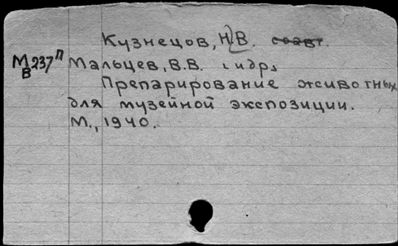 Кузнецов, Н.В. соавт.
М237п Мальцев, В.В. и др.
В
Препарирование животных
для музейной экспозиции.
М., 1940.